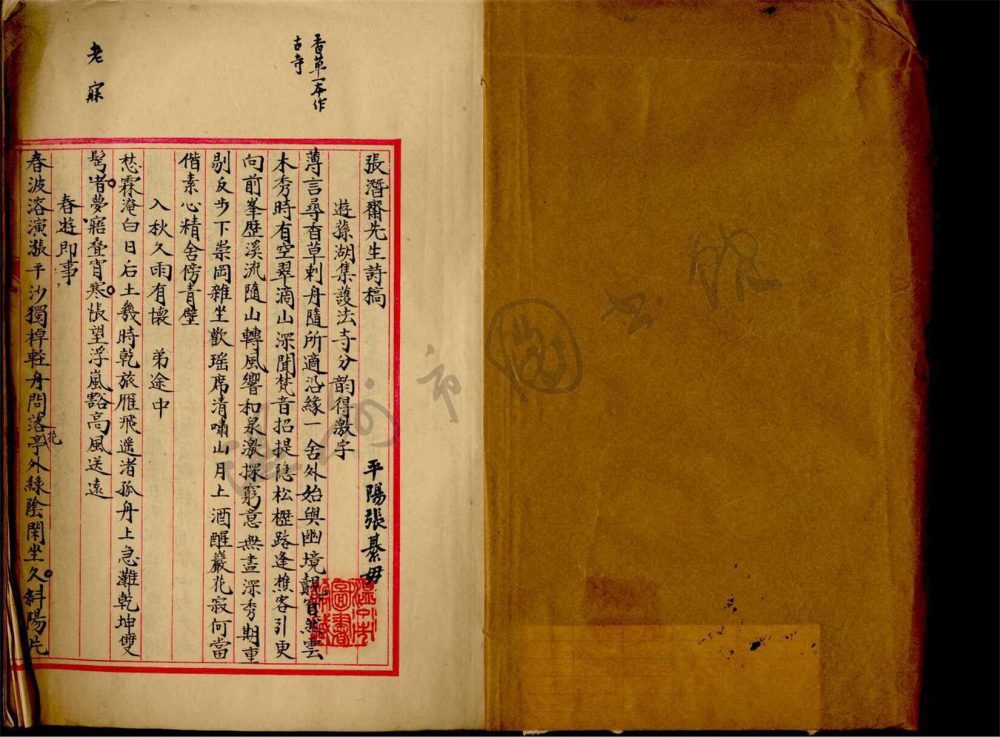 香草一本作
古寺
老 寐
張潛齋先生詩稿
平陽張綦毋
遊蓀湖集護法寺分韵得激字
薄言尋香草刺舟隨所適沿緣一舍外始與幽境覿雲
木秀時有空翠滴山深聞梵音招提隐松櫪路逢樵客引更
向前峯歷溪流隨山轉風響和泉激探窮意無盡深秀期重
剔反步下崇岡雜坐歡瑶席清嘯山月上酒醒巖花寂何當
偕素心精舍傍青壁
入秋久雨有懷 弟途中
愁霖淹白日后土幾時乾旅雁飛遥渚孤舟上急灘乾坤雙
鬂渚夢寤登宵寒悵望浮嵐豁高風送遠
春遊即事
春波溶演漲平沙獨棹輕舟問落花亭外緑陰閑坐久斜陽片
温州市圖書館藏
温州市圖書館